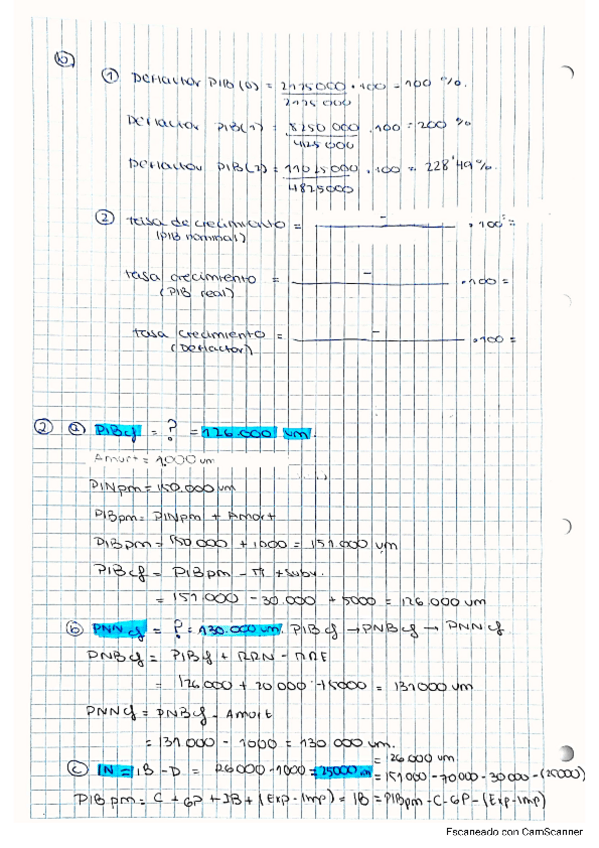 b
① Deflactor PIB(0) = 2175000/2175000 · 100 = 100 %.
Deflactor PIB(1) = 8250 000/4125 000 · 100 = 200 %
Deflactor PIB(2) = 11025000/4825000 · 100 = 228'49 %.
② tasa de crecimiento = - · 100 =
(PIB nominal)
tasa crecimiento = - · 100 =
(PIB real)
tasa crecimiento = - · 100 =
(Deflactor)
② ⓐ PIBcf = ? = 126.000 um.
Amort = 1000 um
PINpm = 150.000 um
PIBpm = PINpm + Amort
PIBpm = 150 000 + 1000 = 151.000 um
PIBcf = PIBpm - Ti + subv.
= 151.000 - 30.000 + 5000 = 126.000 um
ⓑ PNNcf = ? = 130.000 um. PIBcf → PNBcf → PNNcf
PNBcf = PIBcf + RRN - RRE
= 126.000 + 20 000 - 15000 = 131000 um
PNNcf = PNBcf - Amort
= 131 000 - 1000 = 130 000 um.
= 26000 um
ⓒ IN = IB - D = 26000 - 1000 = 25000 um = 151 000 - 70000 - 30 000 - (25000)
PIBpm = C + GP + IB + (Exp - Imp) = IB = PIBpm - C - GP - (Exp - Imp)
Escaneado con CamScanner